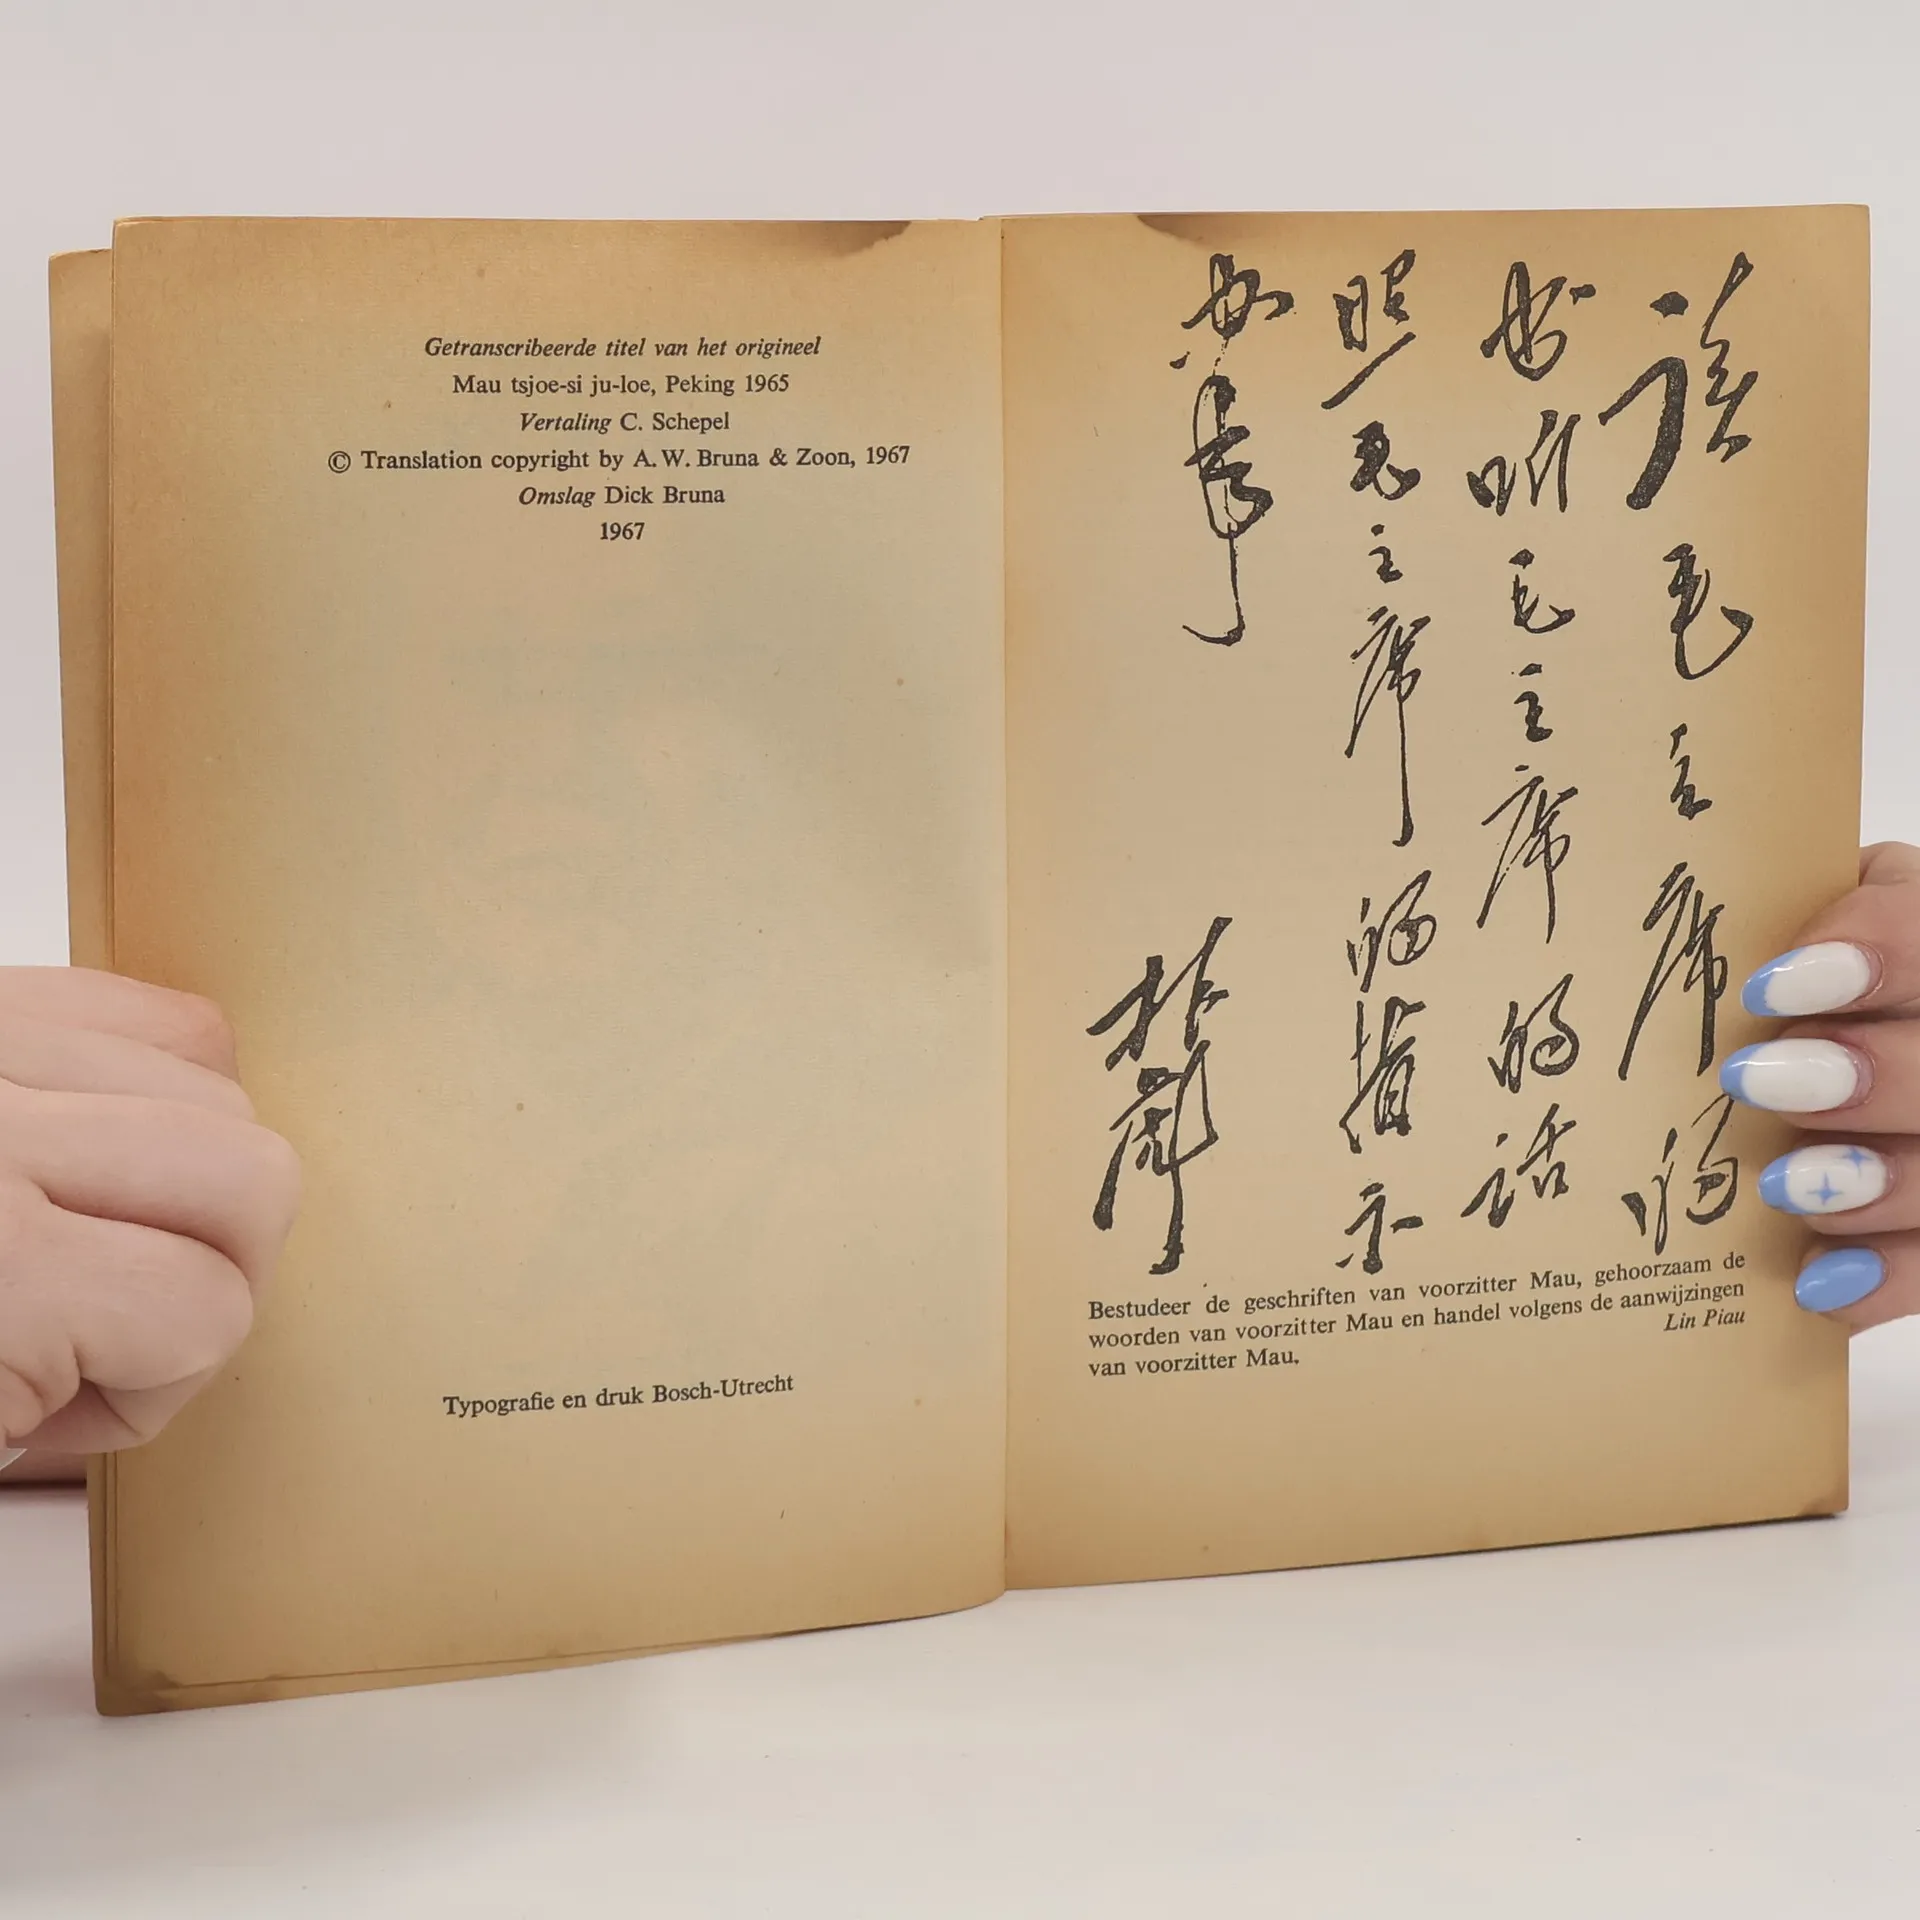 Getranscribeerde titel van het origineel
Mau tsjoe-si ju-loe, Peking 1965
Vertaling C. Schepel
© Translation copyright by A.W. Bruna & Zoon, 1967
Omslag Dick Bruna
1967
Typografie en druk Bosch-Utrecht
读毛主席的
书听毛主席的话
照毛主席的指示
办事
林彪
Bestudeer de geschriften van voorzitter Mau, gehoorzaam de
woorden van voorzitter Mau en handel volgens de aanwijzingen
van voorzitter Mau.
Lin Piau